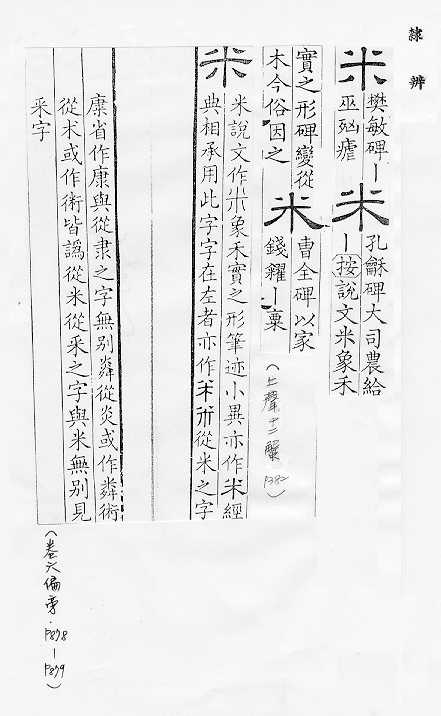 隸辨
米
樊敏碑丨
巫瘧
米
孔龢碑大司農給
丨按說文米象禾
實之形碑變從
木今俗因之
米
曹全碑以家
錢糴丨粟
（上聲十二蟹 P382）
米
米說文作米象禾實之形筆迹小異亦作米經
典相承用此字字在左者亦作從米之字
康省作康與從隶之字無別粦從炎或作粦術
從朮或作術皆譌從米從釆之字與米無別見
釆字
（卷六偏旁．P878－P879）